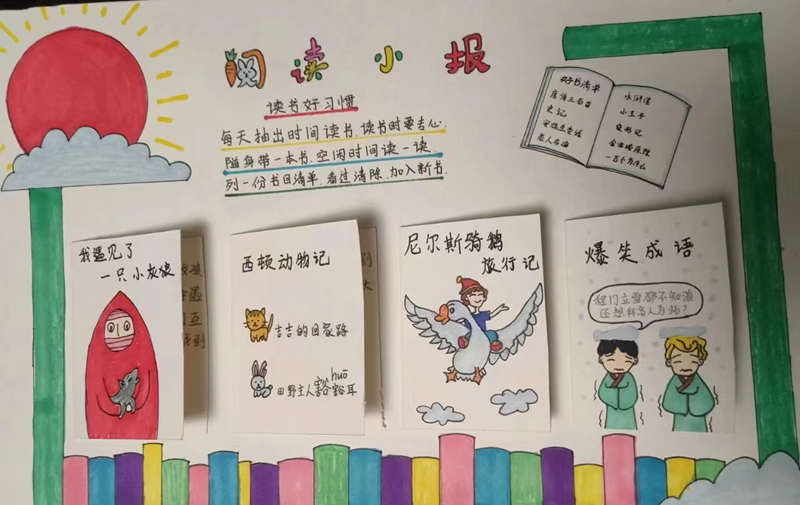 阅读小报
读书好习惯
每天抽出时间读书.读书时要专心.
随身带一本书.空闲时间读一读.
列一份书目清单.看过清除.加入新书.
好书清单
唐诗三百首
史记
老人与海
水浒传
小王子
变形记
我遇见了
一只小灰狼
西顿动物记
吉吉的回家路
huō
田野主人豁豁耳
尼尔斯骑鹅
旅行记
爆笑成语
程门立雪都不知道
还想拜高人为师?